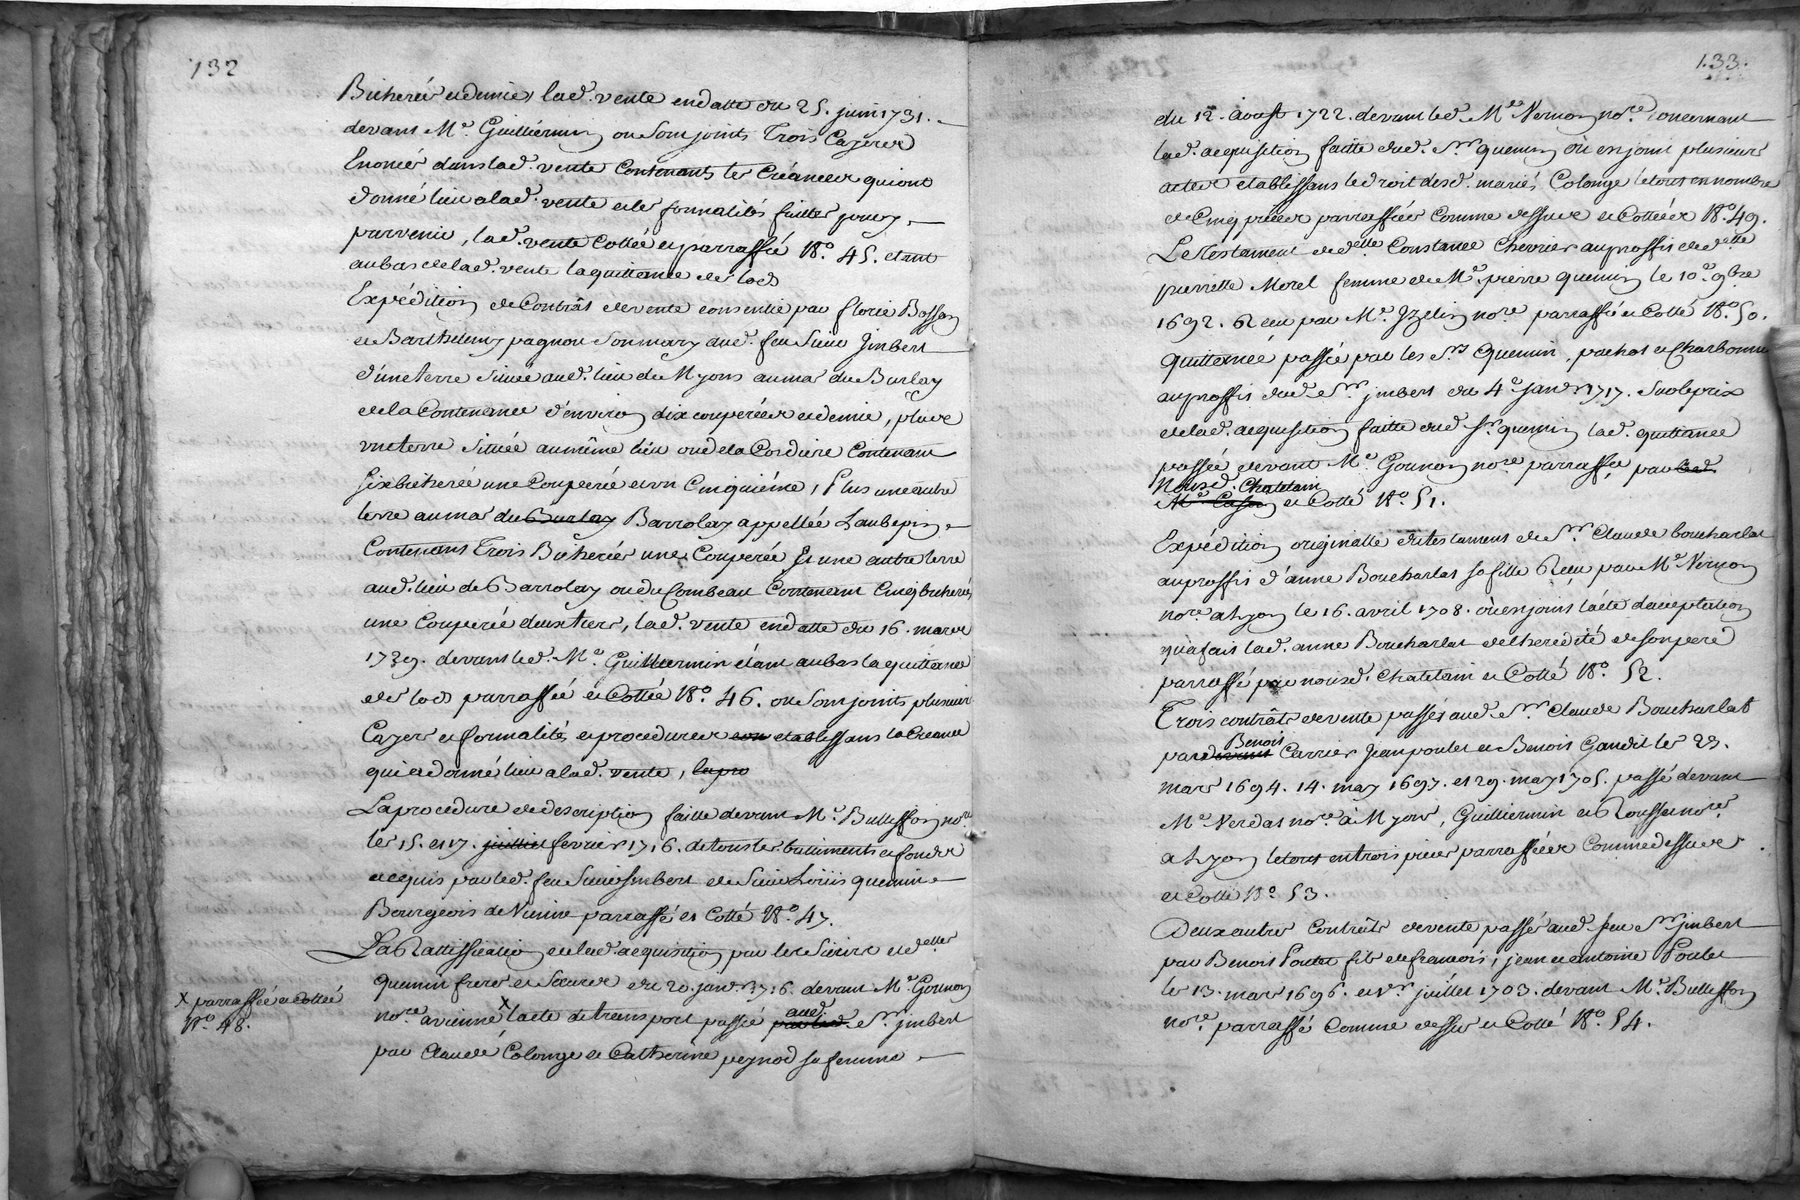 132
Bicherées et demie, lad. vente en datte du 25. juin 1731.
devant Me. Guilliermin ou sont joints Trois Cayeres
Enoncés dans lad. vente Contenants les Créances qui ont
donné lieu a lad. vente et les formalités faittes pour y
parvenir, lad. vente Cottée et parraffée No. 45. etant
au bas de lad. vente la quittance des lods
Expédition de Contrât de vente consentie par florie Bosson
et Barthelemy pagnou son mary aud. feu Sieur Jmbert
d'une terre située aud. lieu de Myons au mas du Burlay
de la Contenance d'environ dix couperées et demie, plus
une terre située au même lieu ou de la Cordiere Contenant
six bicherée une Couperée et un Cinquiéme, Plus une autre
terre au mas du Burlay Barrolay appellée Laubepin
Contenant Trois Bicherées une Couperée Et une autre terre
aud. lieu de Barrolay ou du Combeau Contenant Cinq bicherées
une Couperée deux tiers, lad. vente en datte du 16. mars
1739. devant led. Me. Guilliermin étant au bas la quittance
des lods parraffée et Cottée No. 46. ou sont joints plusieurs
Cayers et formalités et procedures con etablissans la Creance
qui a donné lieu a lad. vente, la pro
La procedure de description faitte devant Me. Bulliffon nore.
les 15. et 17. juillet fevrier 1716. de tous les battiments et fonds
acquis par led. feu Sieur Jmbert de Sieur Loüis quemin
Bourgeois de Vienne parraffé et Cotté No. 47.
La Rattiffication de lad. acquisition par les Sieurs et delles
quemin freres et Soeurs du 20. janvr. 1716. devant Me. Gounon
nore. a vienne X lacte de transport passé par led. aud. Sr. jmbert
par Claude Colonge et Catherine peynod sa femme
X parraffée et Cottée
No. 48.
133.
du 12. Aoust 1722. devant led. Me. Vernon nore. Concernant
lad. acquisition faitte dud. Sr. quemin ou est joint plusieurs
actes etablissans le droit desd. mariés Colonge le tout en nombre
de Cinq piéces parraffées Comme dessus et Cottées No. 49.
Le Testament de delle Constance Chevrier au proffit de delle
pierrette Morel femme de Me. pierre quemin le 10e. 9bre
1692. Reçu par Me. Jzelin nore. parraffé et Cotté No. 50.
Quittance passée par les Srs. Quemin, pachot et Charbonnier
au proffit dud. Sr. jmbert du 4e. janvr. 1717. sur le prix
de lad. acquisition faitte dud. Sr. quemin lad. quittance
passée devant Me. Gounon nore. parraffée, par led.
Nousd. Chatelain
Me. Cason et Cotté No. 51.
Expédition originalle du testament de Sr. Claude boucharlat
au proffit d'anne Boucharlat sa fille Reçu par Me. Vernon
nore. a Lyon le 16. avril 1708. ou est joint l'acte d'acceptation
qu'a fait lad. anne Boucharlat de lheredité de son pere
parraffé par nousd. Chatelain et Cotté No. 52.
Trois contrâts de vente passés aud. Sr. Claude Boucharlat
par devant Benois Carrier Jean poulet et Benois Gandil les 23.
mars 1694. 14. may 1697. et 29. may 1705. passé devant
Me. Verdat nore. à Myons, Guilliermin et Rousset nores.
a Lyon le tout en trois pieces parraffées Comme dessus
et Cotté No. 53.
Deux autres Contrâts de vente passés aud. feu Sr. jmbert
par Benois Poulet fils de francois, jean et antoine Poulet
les 13. mars 1696. et 1er. juillet 1703. devant Me. Bulliffon
nore. parraffé Comme dessus et Cotté No. 54.